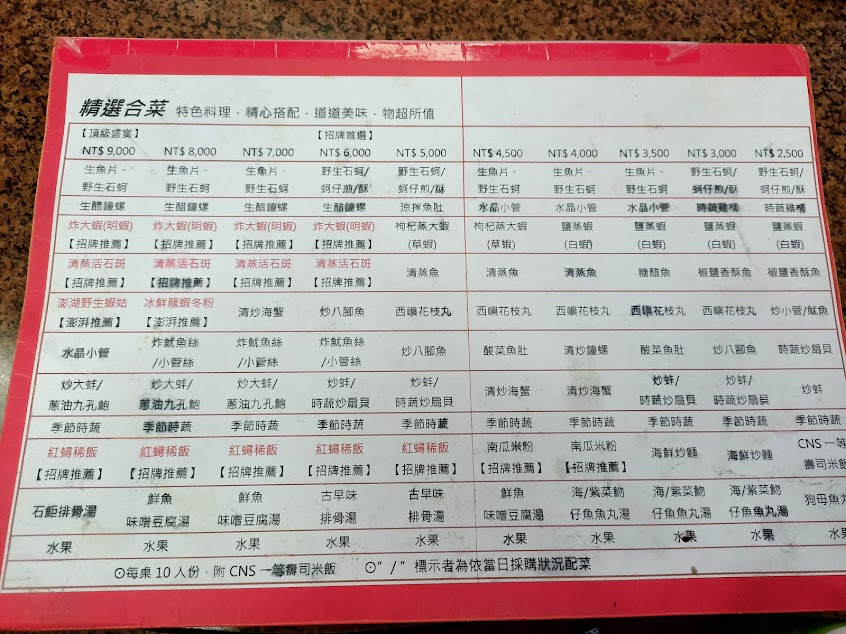 精選合菜 特色料理．精心搭配．道道美味．物超所值
【頂級盛宴】 【招牌首選】
NT$ 9,000 NT$ 8,000 NT$ 7,000 NT$ 6,000 NT$ 5,000 NT$ 4,500 NT$ 4,000 NT$ 3,500 NT$ 3,000 NT$ 2,500
生魚片、 生魚片、 生魚片、 野生石蚵/ 野生石蚵/ 生魚片、 生魚片、 生魚片、 野生石蚵/ 野生石蚵/
野生石蚵 野生石蚵 野生石蚵 蚵仔煎/酥 蚵仔煎/酥 野生石蚵 野生石蚵 野生石蚵 蚵仔煎/酥 蚵仔煎/酥
生醋鐘螺 生醋鐘螺 生醋鐘螺 生醋鐘螺 涼拌魚肚 水晶小管 水晶小管 水晶小管 時蔬雞柳 時蔬雞柳
炸大蝦(明蝦) 炸大蝦(明蝦) 炸大蝦(明蝦) 炸大蝦(明蝦) 枸杞蒸大蝦 枸杞蒸大蝦 鹽蒸蝦 鹽蒸蝦 鹽蒸蝦 鹽蒸蝦
【招牌推薦】 【招牌推薦】 【招牌推薦】 【招牌推薦】 (草蝦) (草蝦) (白蝦) (白蝦) (白蝦) (白蝦)
清蒸活石斑 清蒸活石斑 清蒸活石斑 清蒸活石斑 清蒸魚 清蒸魚 清蒸魚 糖醋魚 椒鹽香酥魚 椒鹽香酥魚
【招牌推薦】 【招牌推薦】 【招牌推薦】 【招牌推薦】
澎湖野生蝦姑 冰鮮龍蝦冬粉 清炒海蟹 炒八腳魚 西嶼花枝丸 西嶼花枝丸 西嶼花枝丸 西嶼花枝丸 西嶼花枝丸 炒小管/魷魚
【澎湃推薦】 【澎湃推薦】
水晶小管 炸魷魚絲 炸魷魚絲 炸魷魚絲 炒八腳魚 酸菜魚肚 清炒鐘螺 酸菜魚肚 炒八腳魚 時蔬炒扇貝
/小管絲 /小管絲 /小管絲
炒大蚌/ 炒大蚌/ 炒大蚌/ 炒蚌/ 炒蚌/ 清炒海蟹 清炒海蟹 炒蚌/ 炒蚌/ 炒蚌
蔥油九孔鮑 蔥油九孔鮑 蔥油九孔鮑 時蔬炒扇貝 時蔬炒扇貝 時蔬炒扇貝 時蔬炒扇貝
季節時蔬 季節時蔬 季節時蔬 季節時蔬 季節時蔬 季節時蔬 季節時蔬 季節時蔬 季節時蔬 季節時蔬
紅蟳稀飯 紅蟳稀飯 紅蟳稀飯 紅蟳稀飯 紅蟳稀飯 南瓜米粉 南瓜米粉 海鮮炒麵 海鮮炒麵 CNS 一等
【招牌推薦】 【招牌推薦】 【招牌推薦】 【招牌推薦】 【招牌推薦】 【招牌推薦】 【招牌推薦】 壽司米飯
石鉅排骨湯 鮮魚 鮮魚 古早味 古早味 鮮魚 海/紫菜魩 海/紫菜魩 海/紫菜魩 狗母魚丸
味噌豆腐湯 味噌豆腐湯 排骨湯 排骨湯 味噌豆腐湯 仔魚魚丸湯 仔魚魚丸湯 仔魚魚丸湯
水果 水果 水果 水果 水果 水果 水果 水果 水果 水果
⊙每桌 10 人份．附 CNS 一等壽司米飯 ⊙"/"標示者為依當日採購狀況配菜